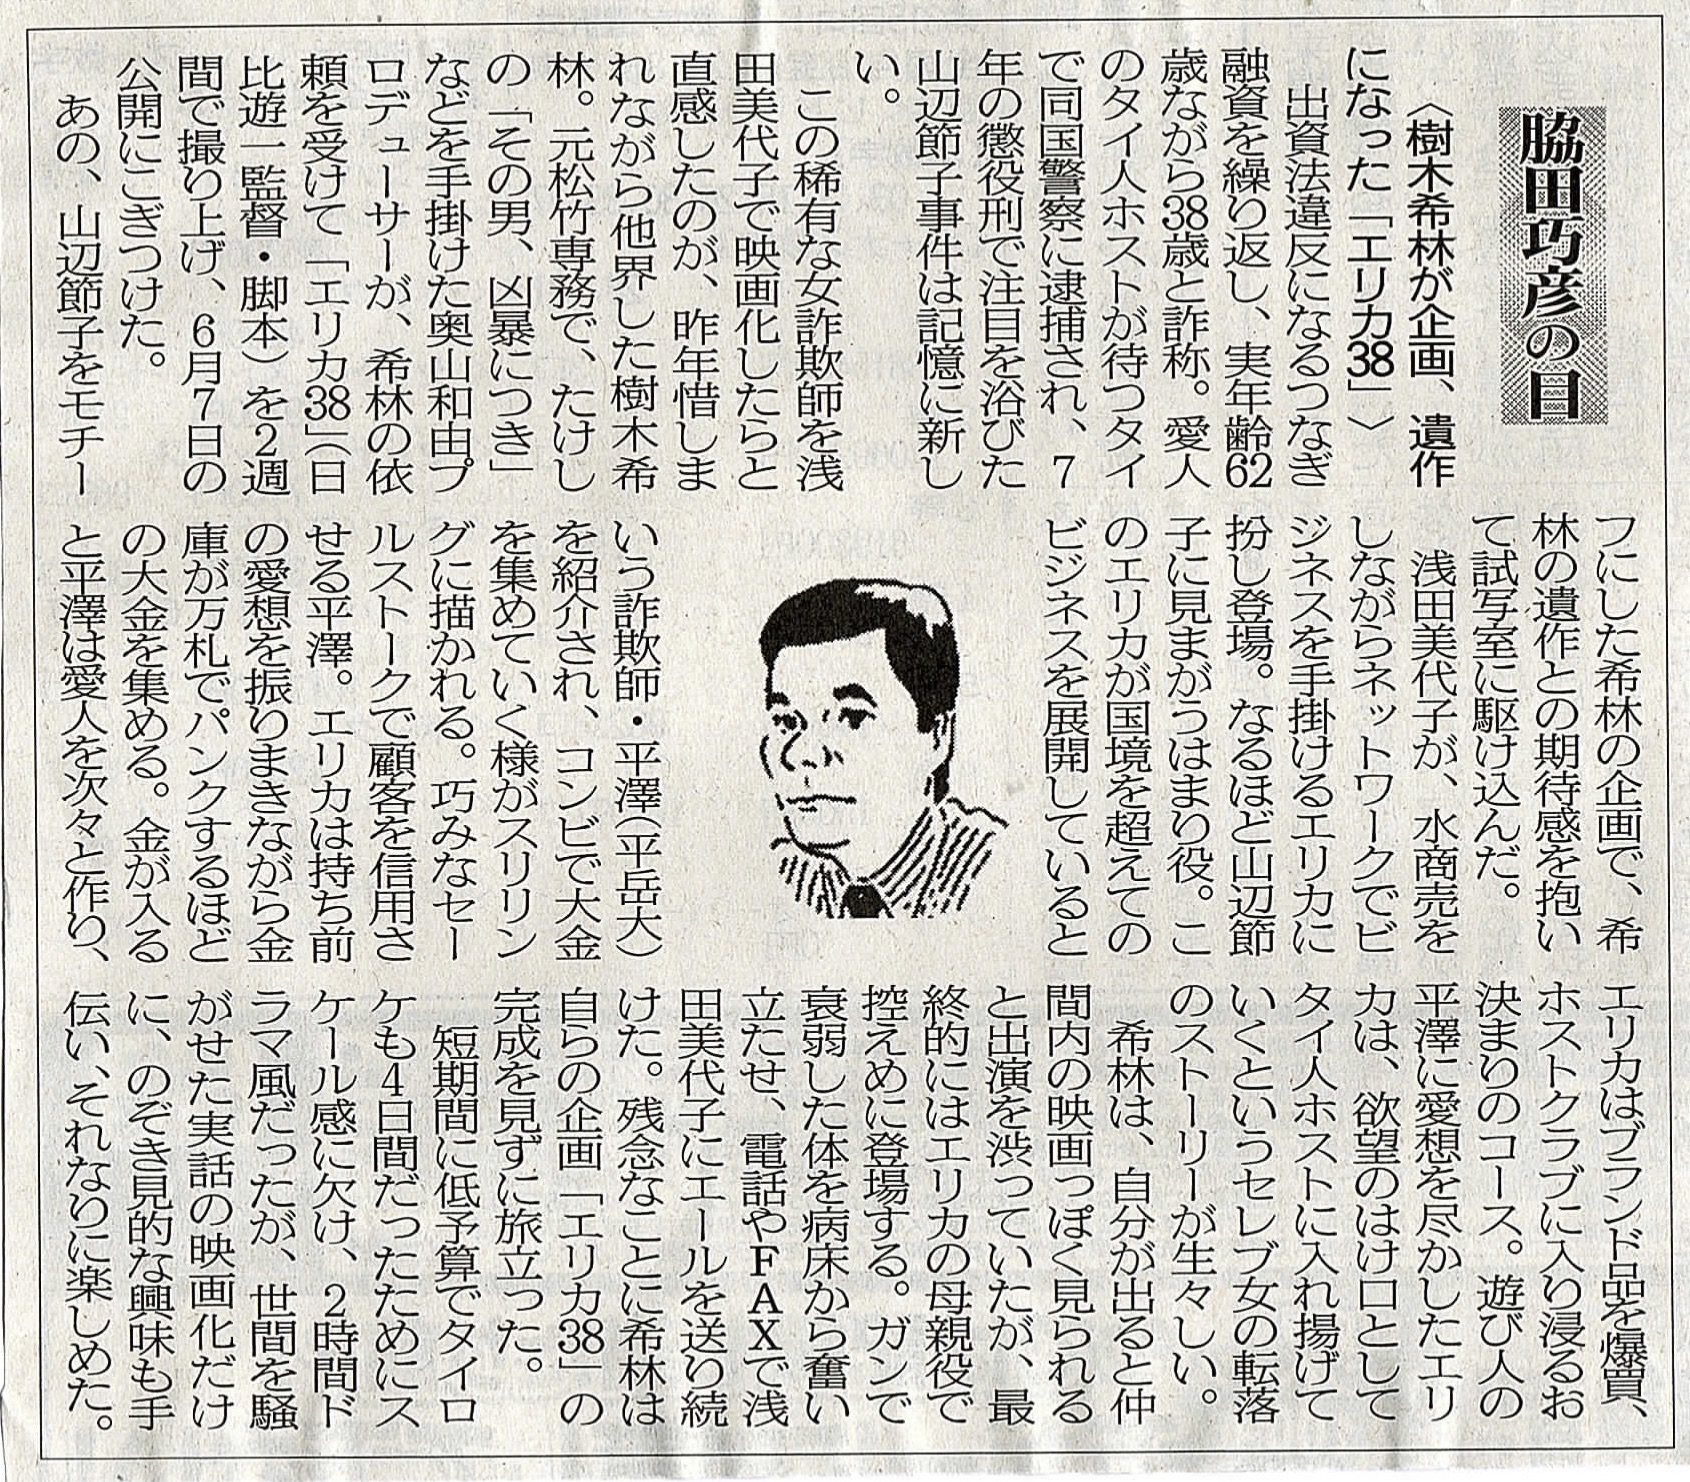 脇田巧彦の目
〈樹木希林が企画、遺作
になった「エリカ38」〉
出資法違反になるつなぎ
融資を繰り返し、実年齢62
歳ながら38歳と詐称。愛人
のタイ人ホストが待つタイ
で同国警察に逮捕され、7
年の懲役刑で注目を浴びた
山辺節子事件は記憶に新し
い。
この稀有な女詐欺師を浅
田美代子で映画化したらと
直感したのが、昨年惜しま
れながら他界した樹木希
林。元松竹専務で、たけし
の「その男、凶暴につき」
などを手掛けた奥山和由プ
ロデューサーが、希林の依
頼を受けて「エリカ38」(日
比遊一監督・脚本)を2週
間で撮り上げ、6月7日の
公開にこぎつけた。
あの、山辺節子をモチー
フにした希林の企画で、希
林の遺作との期待感を抱い
て試写室に駆け込んだ。
浅田美代子が、水商売を
しながらネットワークでビ
ジネスを手掛けるエリカに
扮し登場。なるほど山辺節
子に見まがうはまり役。こ
のエリカが国境を超えての
ビジネスを展開していると
いう詐欺師・平澤(平岳大)
を紹介され、コンビで大金
を集めていく様がスリリン
グに描かれる。巧みなセー
ルストークで顧客を信用さ
せる平澤。エリカは持ち前
の愛想を振りまきながら金
庫が万札でパンクするほど
の大金を集める。金が入る
と平澤は愛人を次々と作り、
エリカはブランド品を爆買、
ホストクラブに入り浸るお
決まりのコース。遊び人の
平澤に愛想を尽かしたエリ
カは、欲望のはけ口として
タイ人ホストに入れ揚げて
いくというセレブ女の転落
のストーリーが生々しい。
希林は、自分が出ると仲
間内の映画っぽく見られる
と出演を渋っていたが、最
終的にはエリカの母親役で
控えめに登場する。ガンで
衰弱した体を病床から奮い
立たせ、電話やFAXで浅
田美代子にエールを送り続
けた。残念なことに希林は
自らの企画「エリカ38」の
完成を見ずに旅立った。
短期間に低予算でタイロ
ケも4日間だったためにス
ケール感に欠け、2時間ド
ラマ風だったが、世間を騒
がせた実話の映画化だけ
に、のぞき見的な興味も手
伝い、それなりに楽しめた。